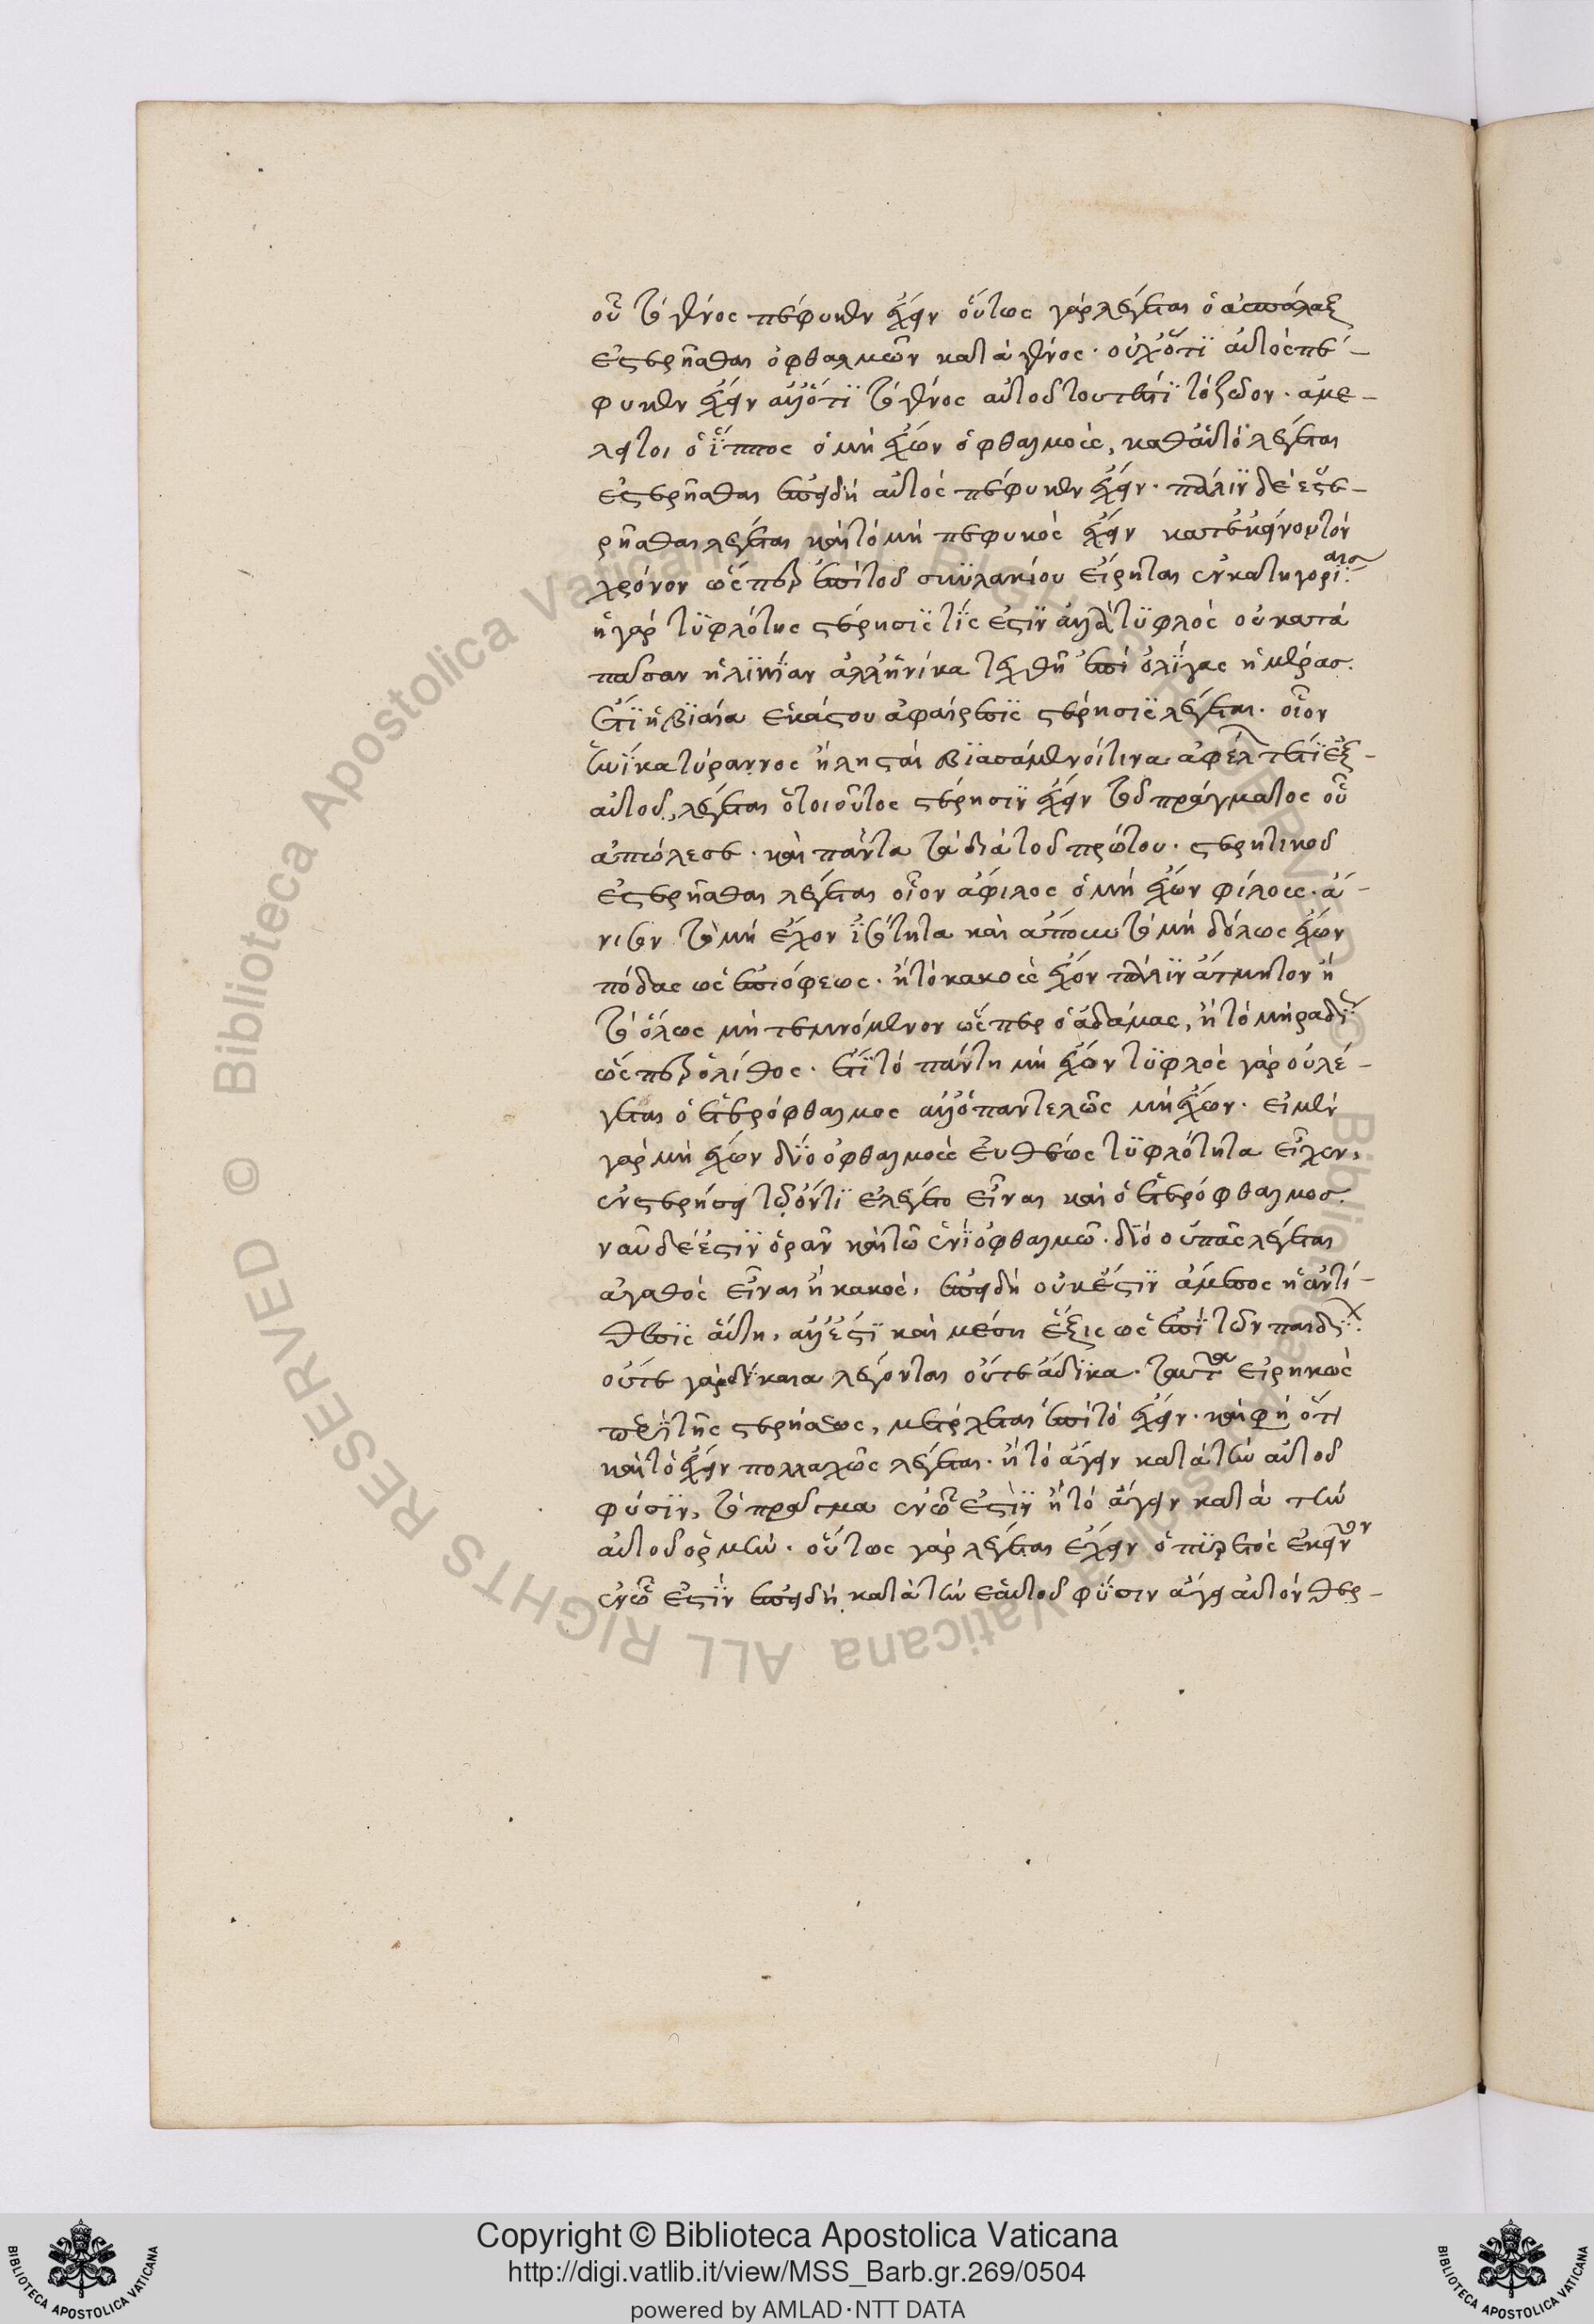 οὗ τὸ γένος πέφυκεν ἔχειν οὕτως γὰρ λέγεται ὁ ἀσπάλαξ
ἐστερῆσθαι ὀφθαλμῶν κατὰ γένος· οὐχ ὅτι αὐτὸς πέ-
φυκεν ἔχειν ἀλλ' ὅτι τὸ γένος αὐτοῦ τουτέστι τὸ ζῶον· ἀμέ-
λει τοι ὁ ἵππος ὁ μὴ ἔχων ὀφθαλμοὺς, καθ' αὑτὸ λέγεται
ἐστερῆσθαι ἐπειδὴ αὐτὸς πέφυκεν ἔχειν· πάλιν δὲ ἐστε-
ρῆσθαι λέγεται καὶ τὸ μὴ πεφυκὸς ἔχειν κατ' ἐκεῖνον τὸν
χρόνον ὥσπερ ἐπὶ τοῦ σκυλακίου εἴρηται ἐν κατηγορίαις·
ἡ γὰρ τυφλότης στέρησις τίς ἐστιν ἀλλὰ τυφλὸς οὐ κατὰ
πᾶσαν ἡλικίαν ἀλλ' ἡνίκα τεχθῆ ἐπὶ ὀλίγας ἡμέρας.
ἔτι ἡ βιαία ἑκάστου ἀφαίρεσις στέρησις λέγεται· οἷον
ἡνίκα τύραννος ἢ λῃσταὶ βιασάμενοί τινα ἀφέλ τι ἐξ-
αὐτοῦ, λέγεται ὁ τοιοῦτος στέρησιν ἔχειν τοῦ πράγματος οὗ
ἀπώλεσε· καὶ πάντα τὰ διὰ τοῦ πρώτου· στερητικοῦ
ἐστερῆσθαι λέγεται οἷον ἄφιλος ὁ μὴ ἔχων φίλους· ἄ-
νισον τὸ μὴ ἔχον ἰσότητα καὶ ἄπουν τὸ μὴ ὅλως ἔχων
πόδας ὡς ἐπι ὄφεως· ἢ τὸ κακοὺς ἔχον πάλιν ἄτμητον ἢ
τὸ ὅλως μὴ τεμνόμενον ὥσπερ ὁ ἀδάμας, ἢ τὸ μὴ ραδί
ὥσπερ ὁ λίθος· ἔτι τὸ πάντη μὴ ἔχων τυφλὸς γὰρ οὐ λέ-
γεται ὁ ἑτερόφθαλμος ἀλλ' ὁ παντελῶς μὴ ἔχων· εἰ μὲν
γὰρ μὴ ἔχων δύο ὀφθαλμοὺς εὐθέως τυφλότητα εἶχεν,
ἐν στερήσει τῶ ὄντι ἐλέγετο εἶναι καὶ ὁ ἑτερόφθαλμος.
νῦν δὲ ἔστιν ὁρᾶν καὶ τῶ ἑνὶ ὀφθαλμῶ· διὸ οὐ πᾶς λέγεται
ἀγαθὸς εἶναι ἢ κακὸς, ἐπειδὴ οὐκ ἔστιν ἄμεσος ἡ ἀντί-
θεσις αὕτη, ἀλλ' ἔστι καὶ μέση ἕξις ὡς ἐπὶ τῶν παιδί
οὔτε γὰρ δίκαια λέγονται οὔτε ἄδικα· ταῦτα εἰρηκὼς
περὶ τῆς στερήσεως, μετέρχεται ἐπὶ τὸ ἔχειν· καὶ φὴ ὅτι
καὶ τὸ ἔχειν πολλαχῶς λέγεται· ἢ τὸ ἄγειν κατὰ τὴν αὑτοῦ
φύσιν, τὸ πρᾶγμα ἐν ὧ ἐστὶν ἢ τὸ ἄγειν κατὰ τὴν
αὑτοῦ ὁρμὴν· οὕτως γὰρ λέγεται ἔχειν ὁ πυρετὸς ἐκεῖνον
ἐν ὧ ἐστὶν ἐπειδὴ κατὰ τὴν ἑαυτοῦ φύσιν ἄγει αὐτὸν θερ-
Copyright © Biblioteca Apostolica Vaticana
http://digi.vatlib.it/view/MSS_Barb.gr.269/0504
powered by AMLAD·NTT DATA